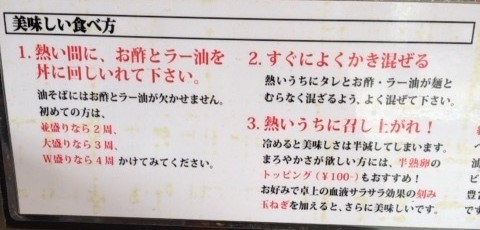 美味しい食べ方
1. 熱い間に、お酢とラー油を
丼に回しいれて下さい。
油そばにはお酢とラー油が欠かせません。
初めての方は、
並盛りなら2周、
大盛りなら3周、
W盛りなら4周 かけてみてください。
2. すぐによくかき混ぜる
熱いうちにタレとお酢・ラー油が麺と
むらなく混ざるよう、よく混ぜて下さい。
3. 熱いうちに召し上がれ!
冷めると美味しさは半減してしまいます。
まろやかさが欲しい方には、半熟卵の
トッピング(¥100-)もおすすめ!
お好みで卓上の血液サラサラ効果の刻み
玉ねぎを加えると、さらに美味しいです。